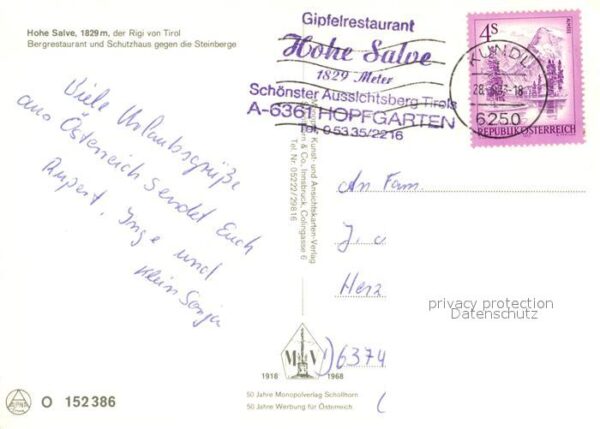 Hohe Salve, 1829 m, der Rigi von Tirol
Bergrestaurant und Schutzhaus gegen die Steinberge
Gipfelrestaurant
Hohe Salve
1829 Meter
Schönster Aussichtsberg Tirols
A-6361 HOPFGARTEN
Tel. 05335/2216
4s
REPUBLIK ÖSTERREICH
KUNDL
6250
Viele Urlaubsgrüße
aus Österreich sendet Euch
Rupert, Inge und
klein Sonja
Kunst- und Ansichtskarten-Verlag
& Co, Innsbruck, Colingasse 6
Tel. Nr. 05222/29816
An Fam.
J. u
Herz
privacy protection
Datenschutz
6374
M V
1918 1968
50 Jahre Monopolverlag Schöllhorn
50 Jahre Werbung für Österreich.
O 152386